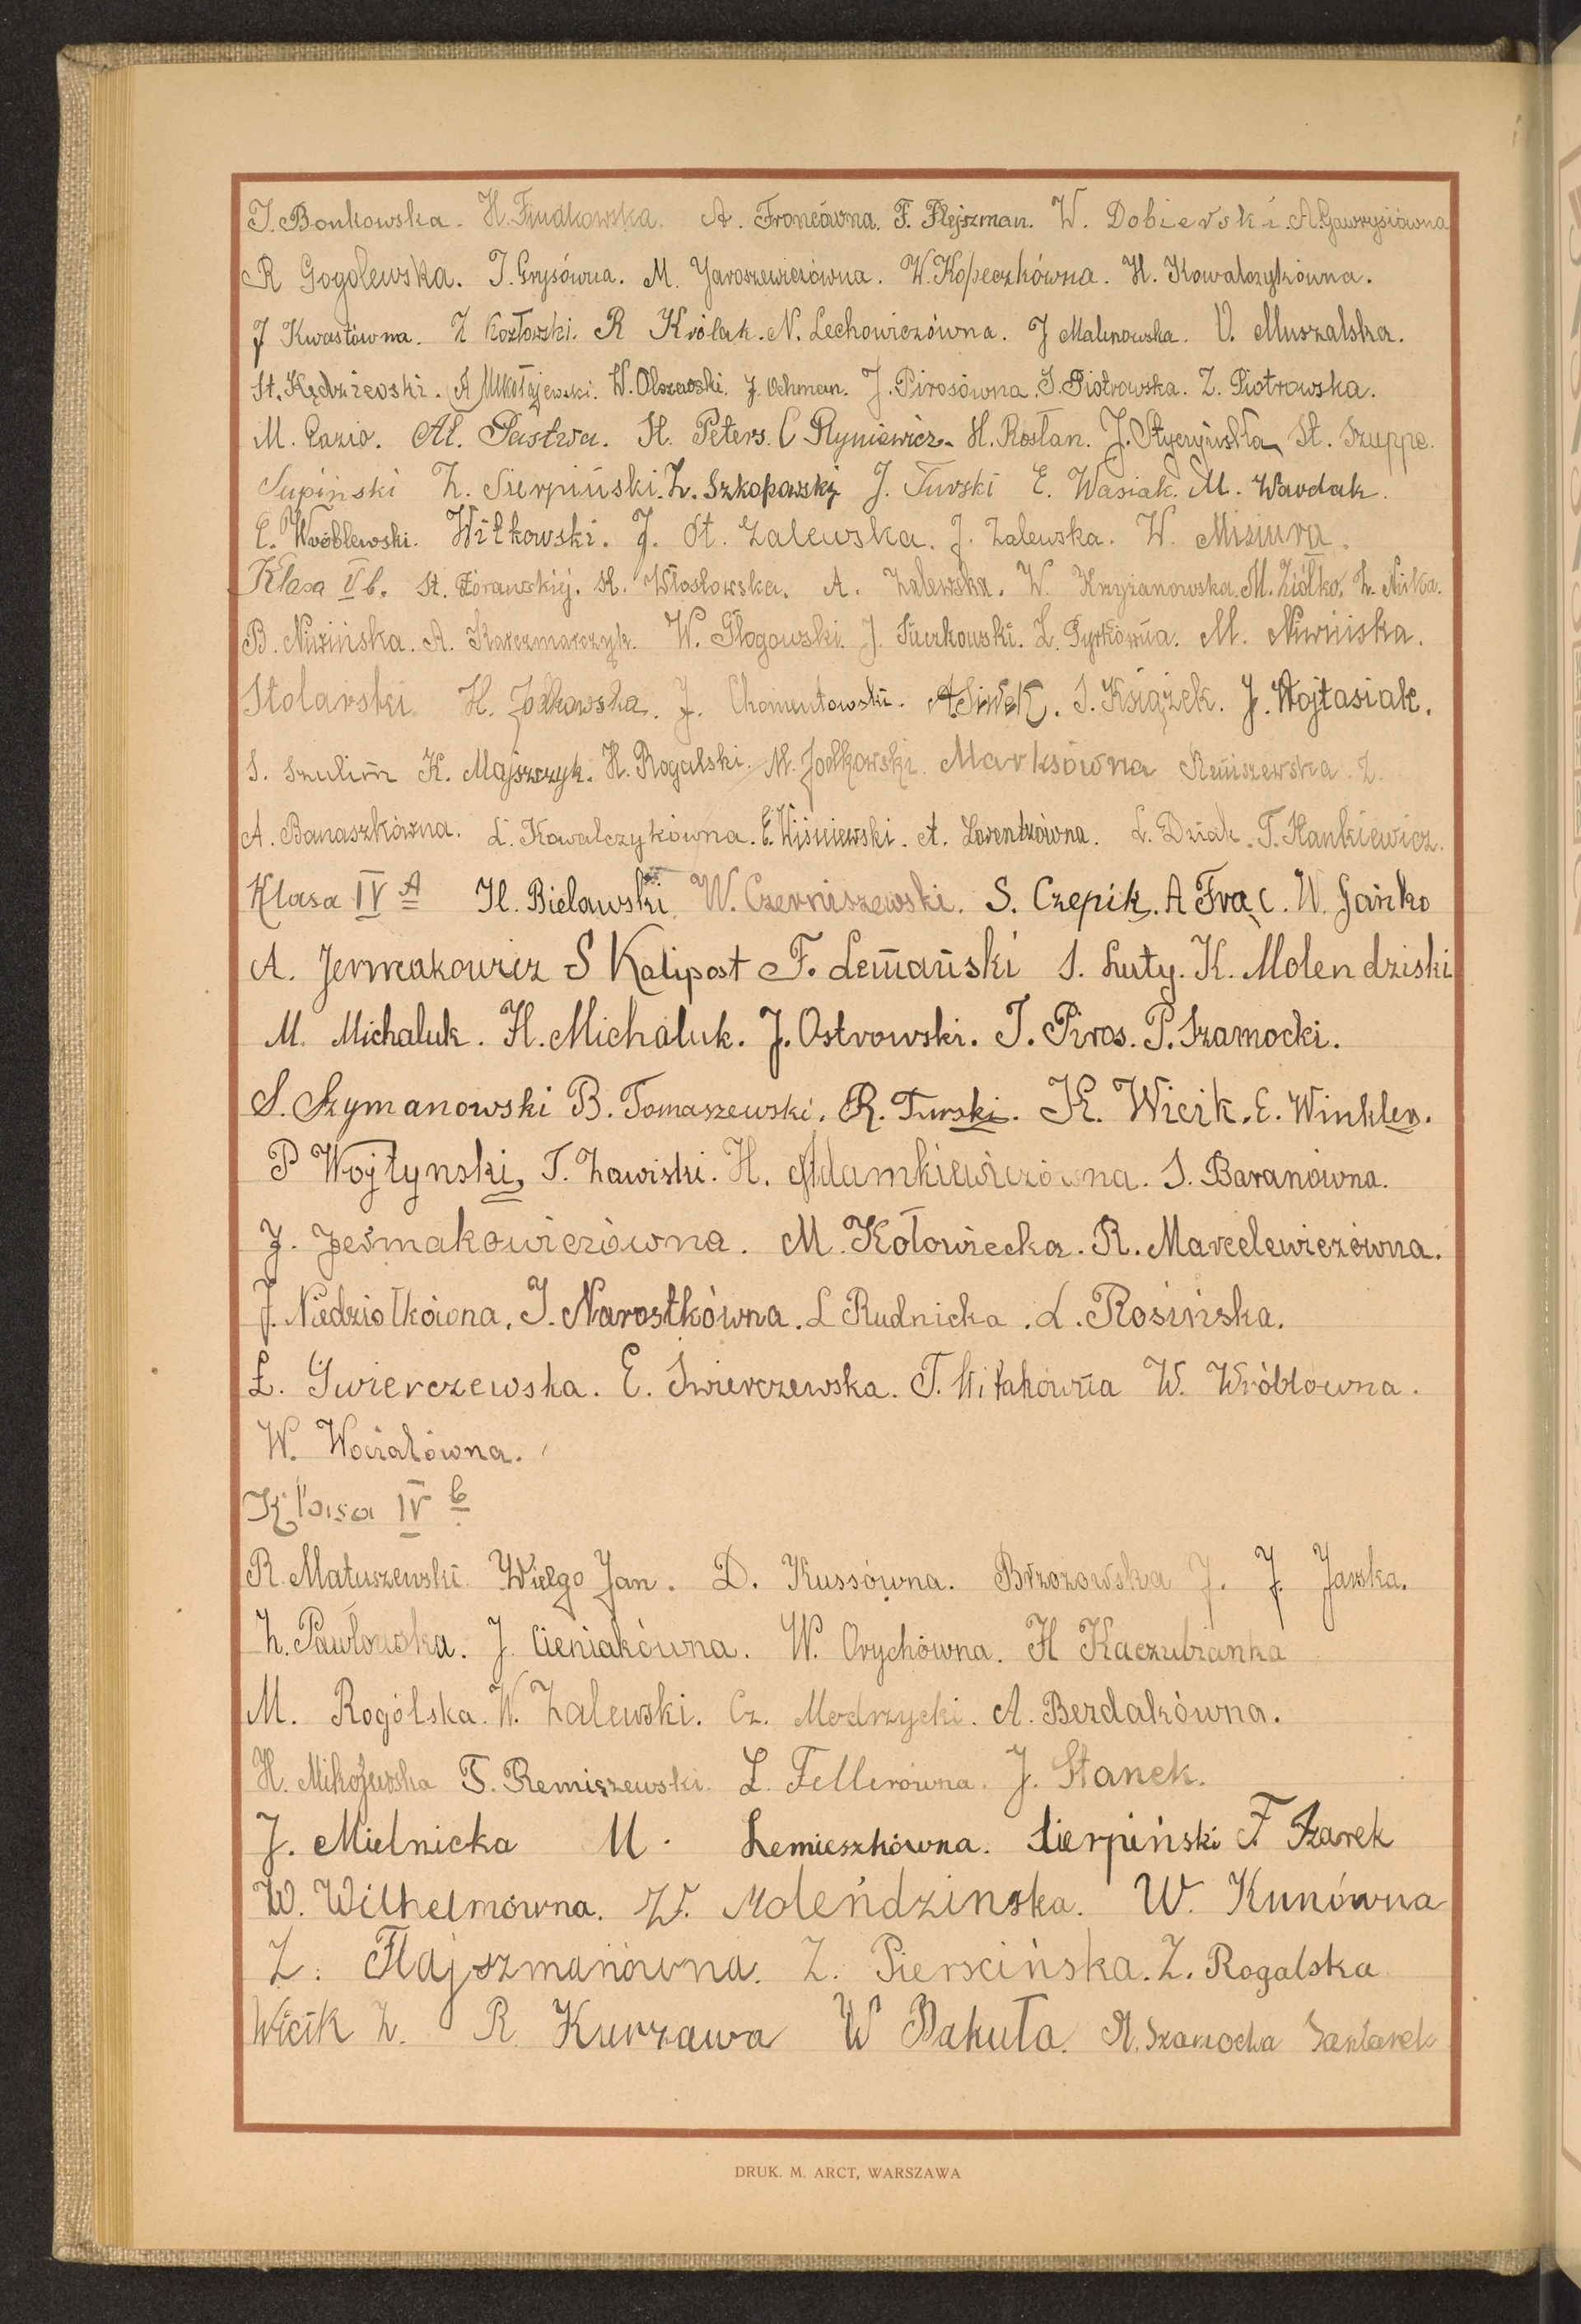 J. Bonkowska. H. Fiudkowska. A. Froncówna. F. Flejszman. W. Dobierski. A. Gawrysiówna
R Gogolewska. J. Grysówna. M. Jaroszewiczówna. W. Kopeczkówna. H. Kowalczykówna.
J Kwastówna. Z Kozłowski. R Królak. N. Lechowiczówna. J Malinowska. U. Muszalska.
St. Kędzierski. A Mikołajewski. W. Olszewski. J. Ochman. J. Pirosówna. S. Piotrowska. Z. Piotrowska.
M. Pazio. Al. Pastwa. H. Peters. C Ryniewicz. H. Rosłan. J. Styczyńska St. Szuppe.
Supiński Z. Sierpiński. Z. Szkopowski J. Turski E. Wasiak. M. Wardak.
E. Wróblewski. Witkowski. J. St. Zalewska. J. Zalewska. W. Misiura.
Klasa V b. St. Żórawskiej. H. Włosłowska. A. Zalewska. W. Krzyżanowska. M. Ziółko. Z. Nitka.
B. Niwińska. A. Karczmarczyk. W. Głogowski. J. Turkowski. L. Pyrkówna. M. Niwińska.
Stolarski. H. Jodkowska. J. Chomentowski. A Siwek. S. Książek. J. Wojtasiak.
S. Szulim K. Majszczyk. H. Rogalski. M. Jodkowski. Marksówna Remiszewska. Z.
A. Banaszkówna. L. Kowalczykówna. E. Wiśniewski. A. Lorentzówna. L. Dziak. T. Hankiewicz.
Klasa IV A H. Bielawski W. Czerniszewski. S. Czepik. A Frąc. W. Jańko
A. Jermakowicz S Kalipost F. Lemański S. Luty. K. Molendziski
M. Michaluk. H. Michaluk. J. Ostrowski. T. Piros. P. Szamocki.
S. Szymanowski B. Tomaszewski. R. Turski. K. Wicik. E. Winkler.
P Wojtynski, T. Zawiski. H. Adamkiewiczówna. S. Baranówna.
J. Jermakowiczówna. M. Kołowiecka. R. Marcelewiczówna.
J. Niedziołkówna. J. Narostkówna. L Rudnicka. L. Rosińska.
Ł. Swierczewska. E. Swierczewska. T. Witakówna W. Wróblówna.
W. Wociałówna.
Klasa IV b
R. Matuszewski. Wielgo Jan. D. Kussówna. Brzozowska J. J. Jarska.
Z. Pawłowska. J. Cieniakówna. W. Orychówna. H Kaczubianka
M. Rogólska. W. Zalewski. Cz. Modrzycki. A. Berdakówna.
H. Mikojewska T. Remiszewski. L. Fellerówna. J. Stanek.
J. Mielnicka M. Lemieszkówna. Sierpiński F Szarek
W. Wilhelmówna. W. Moleńdzinska. W. Kunówna
Z. Flajszmanówna. Z. Pierscińska. Z. Rogalska
Wicik Z. R Kurzawa W Bakuła. A. Szamocka
DRUK. M. ARCT, WARSZAWA